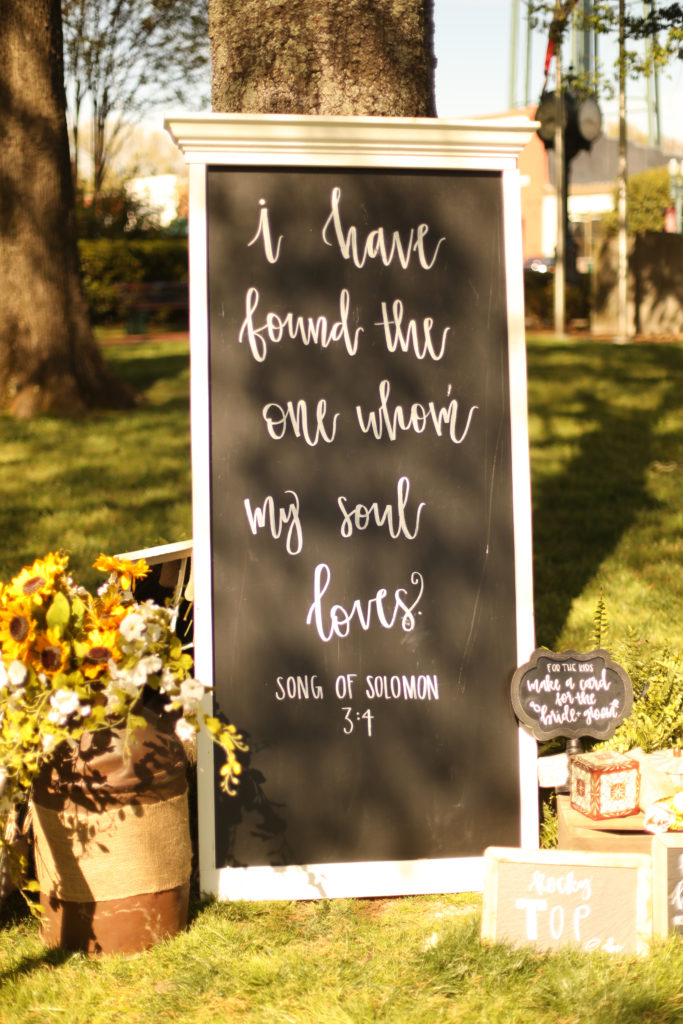 i have
found the
one whom
my soul
loves.
SONG OF SOLOMON
3:4
FOR THE KIDS
make a card
for the
bride + groom
Rocky
TOP